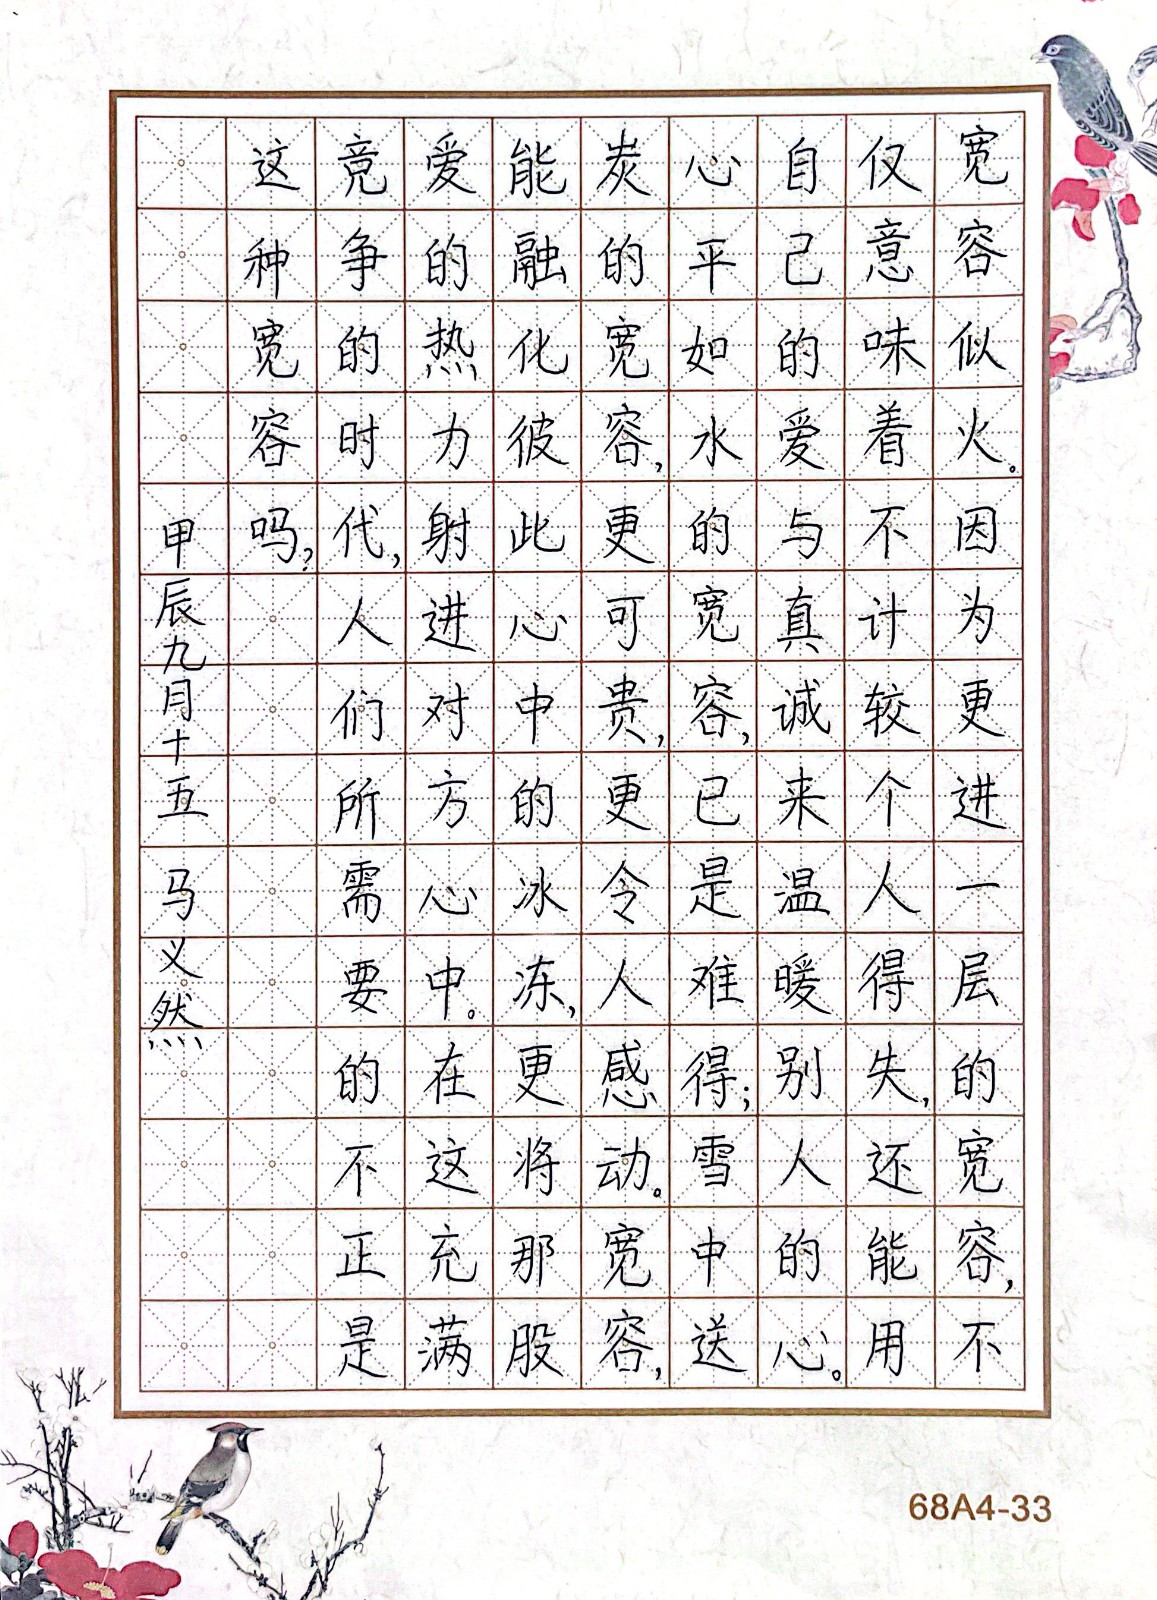 宽容似火。因为更进一层的宽容,不
仅意味着不计较个人得失,还能用
自己的爱与真诚来温暖别人的心。
心平如水的宽容,已是难得;雪中送
炭的宽容,更可贵,更令人感动。宽容,
能融化彼此心中的冰冻,更将那股
爱的热力射进对方心中。在这充满
竞争的时代,人们所需要的不正是
这种宽容吗?
甲辰九月十五 马义然
68A4-33